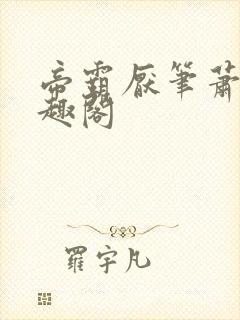 帝霸厌笔萧
趣阁
羅宇凡